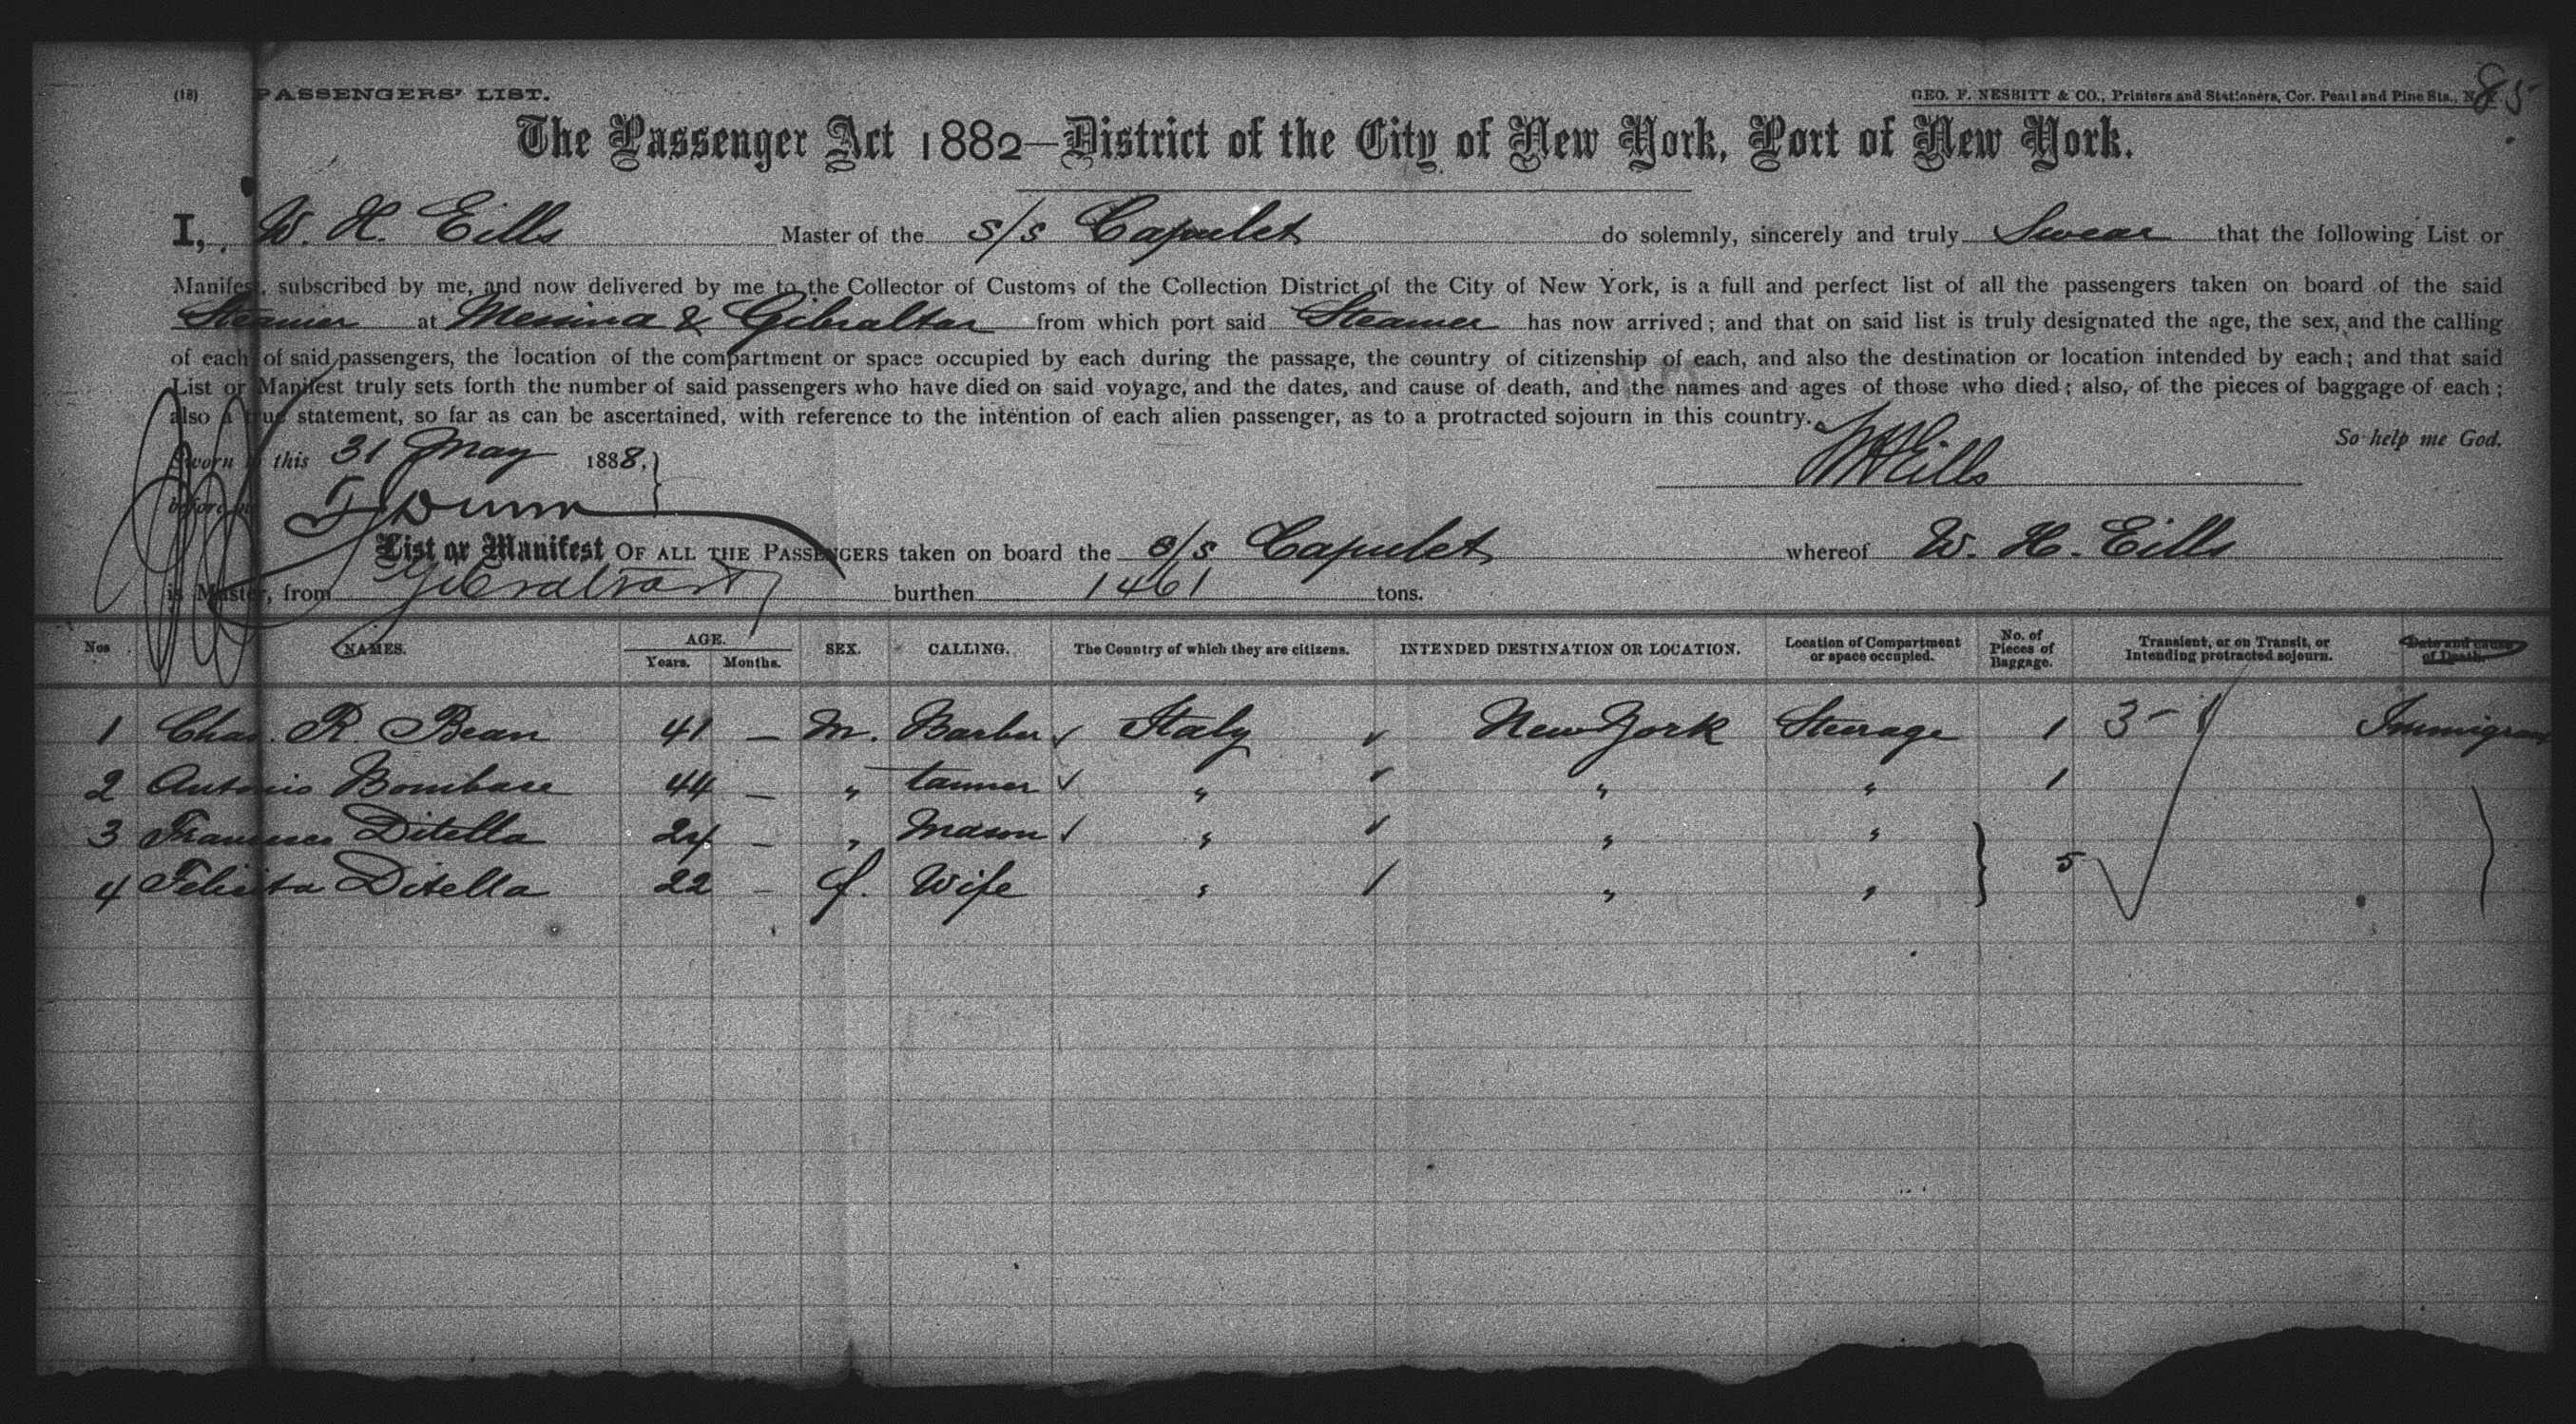 (18) PASSENGERS' LIST. GEO. F. NESBITT & CO., Printers and Stationers, Cor. Pearl and Pine Sts., N. Y. 85
The Passenger Act 1882—District of the City of New York, Port of New York.
I, W. H. Eills Master of the s/s Capulet do solemnly, sincerely and truly Swear that the following List or
Manifest, subscribed by me, and now delivered by me to the Collector of Customs of the Collection District of the City of New York, is a full and perfect list of all the passengers taken on board of the said
Steamer at Messina & Gibraltar from which port said Steamer has now arrived; and that on said list is truly designated the age, the sex, and the calling
of each of said passengers, the location of the compartment or space occupied by each during the passage, the country of citizenship of each, and also the destination or location intended by each; and that said
List or Manifest truly sets forth the number of said passengers who have died on said voyage, and the dates, and cause of death, and the names and ages of those who died; also, of the pieces of baggage of each;
also a true statement, so far as can be ascertained, with reference to the intention of each alien passenger, as to a protracted sojourn in this country.
So help me God.
Sworn to this 31 May 1888,
WHEills
before me
F Dunn
List or Manifest OF ALL THE PASSENGERS taken on board the s/s Capulet whereof W. H. Eills
is Master, from Gibraltar burthen 1461 tons.
Nos NAMES. AGE. Years. Months. SEX. CALLING. The Country of which they are citizens. INTENDED DESTINATION OR LOCATION. Location of Compartment or space occupied. No. of Pieces of Baggage. Transient, or on Transit, or Intending protracted sojourn. Date and cause of Death.
1 Chas. R. Bean 41 — M. Barber Italy New York Steerage 1 3 – Immigrant
2 Antonio Bombase 44 — " tanner " " " 1
3 Francesco Ditella 24 — " Mason " " "
4 Felicita Ditella 22 – f. Wife " " " 5